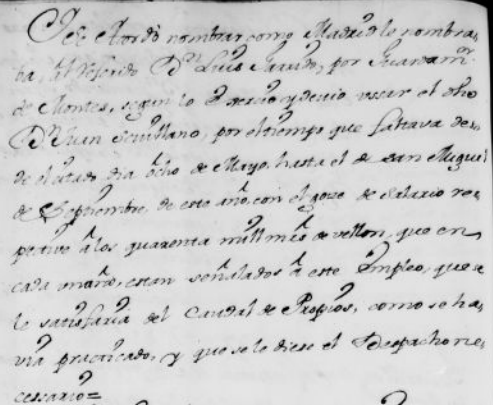 Se Acordo nombrar como Madrid lo nombra-
ba, al referido Dn Luis Garrido, por Guardamr
de Montes, segun lo exercio y devio usar el dho
Dn Juan Sevillano, por el tiempo que faltava des-
de el citado dia ocho de Mayo, hasta el de san Miguel
de Septiembre, de este año, con el goze de salario res-
pectivo a los quarenta mill mrs de vellon, que en
cada un año, estan señalados a este Empleo, que se
le satisfaria del Caudal de Propios, como se ha-
via practicado, y que se le diese el Despacho ne-
cessario=